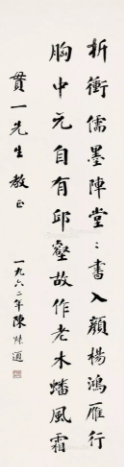 折衝儒墨陣堂〻書入顏楊鴻雁行
胸中元自有邱壑故作老木蟠風霜
貫一先生教正
一九六二年陳陳通